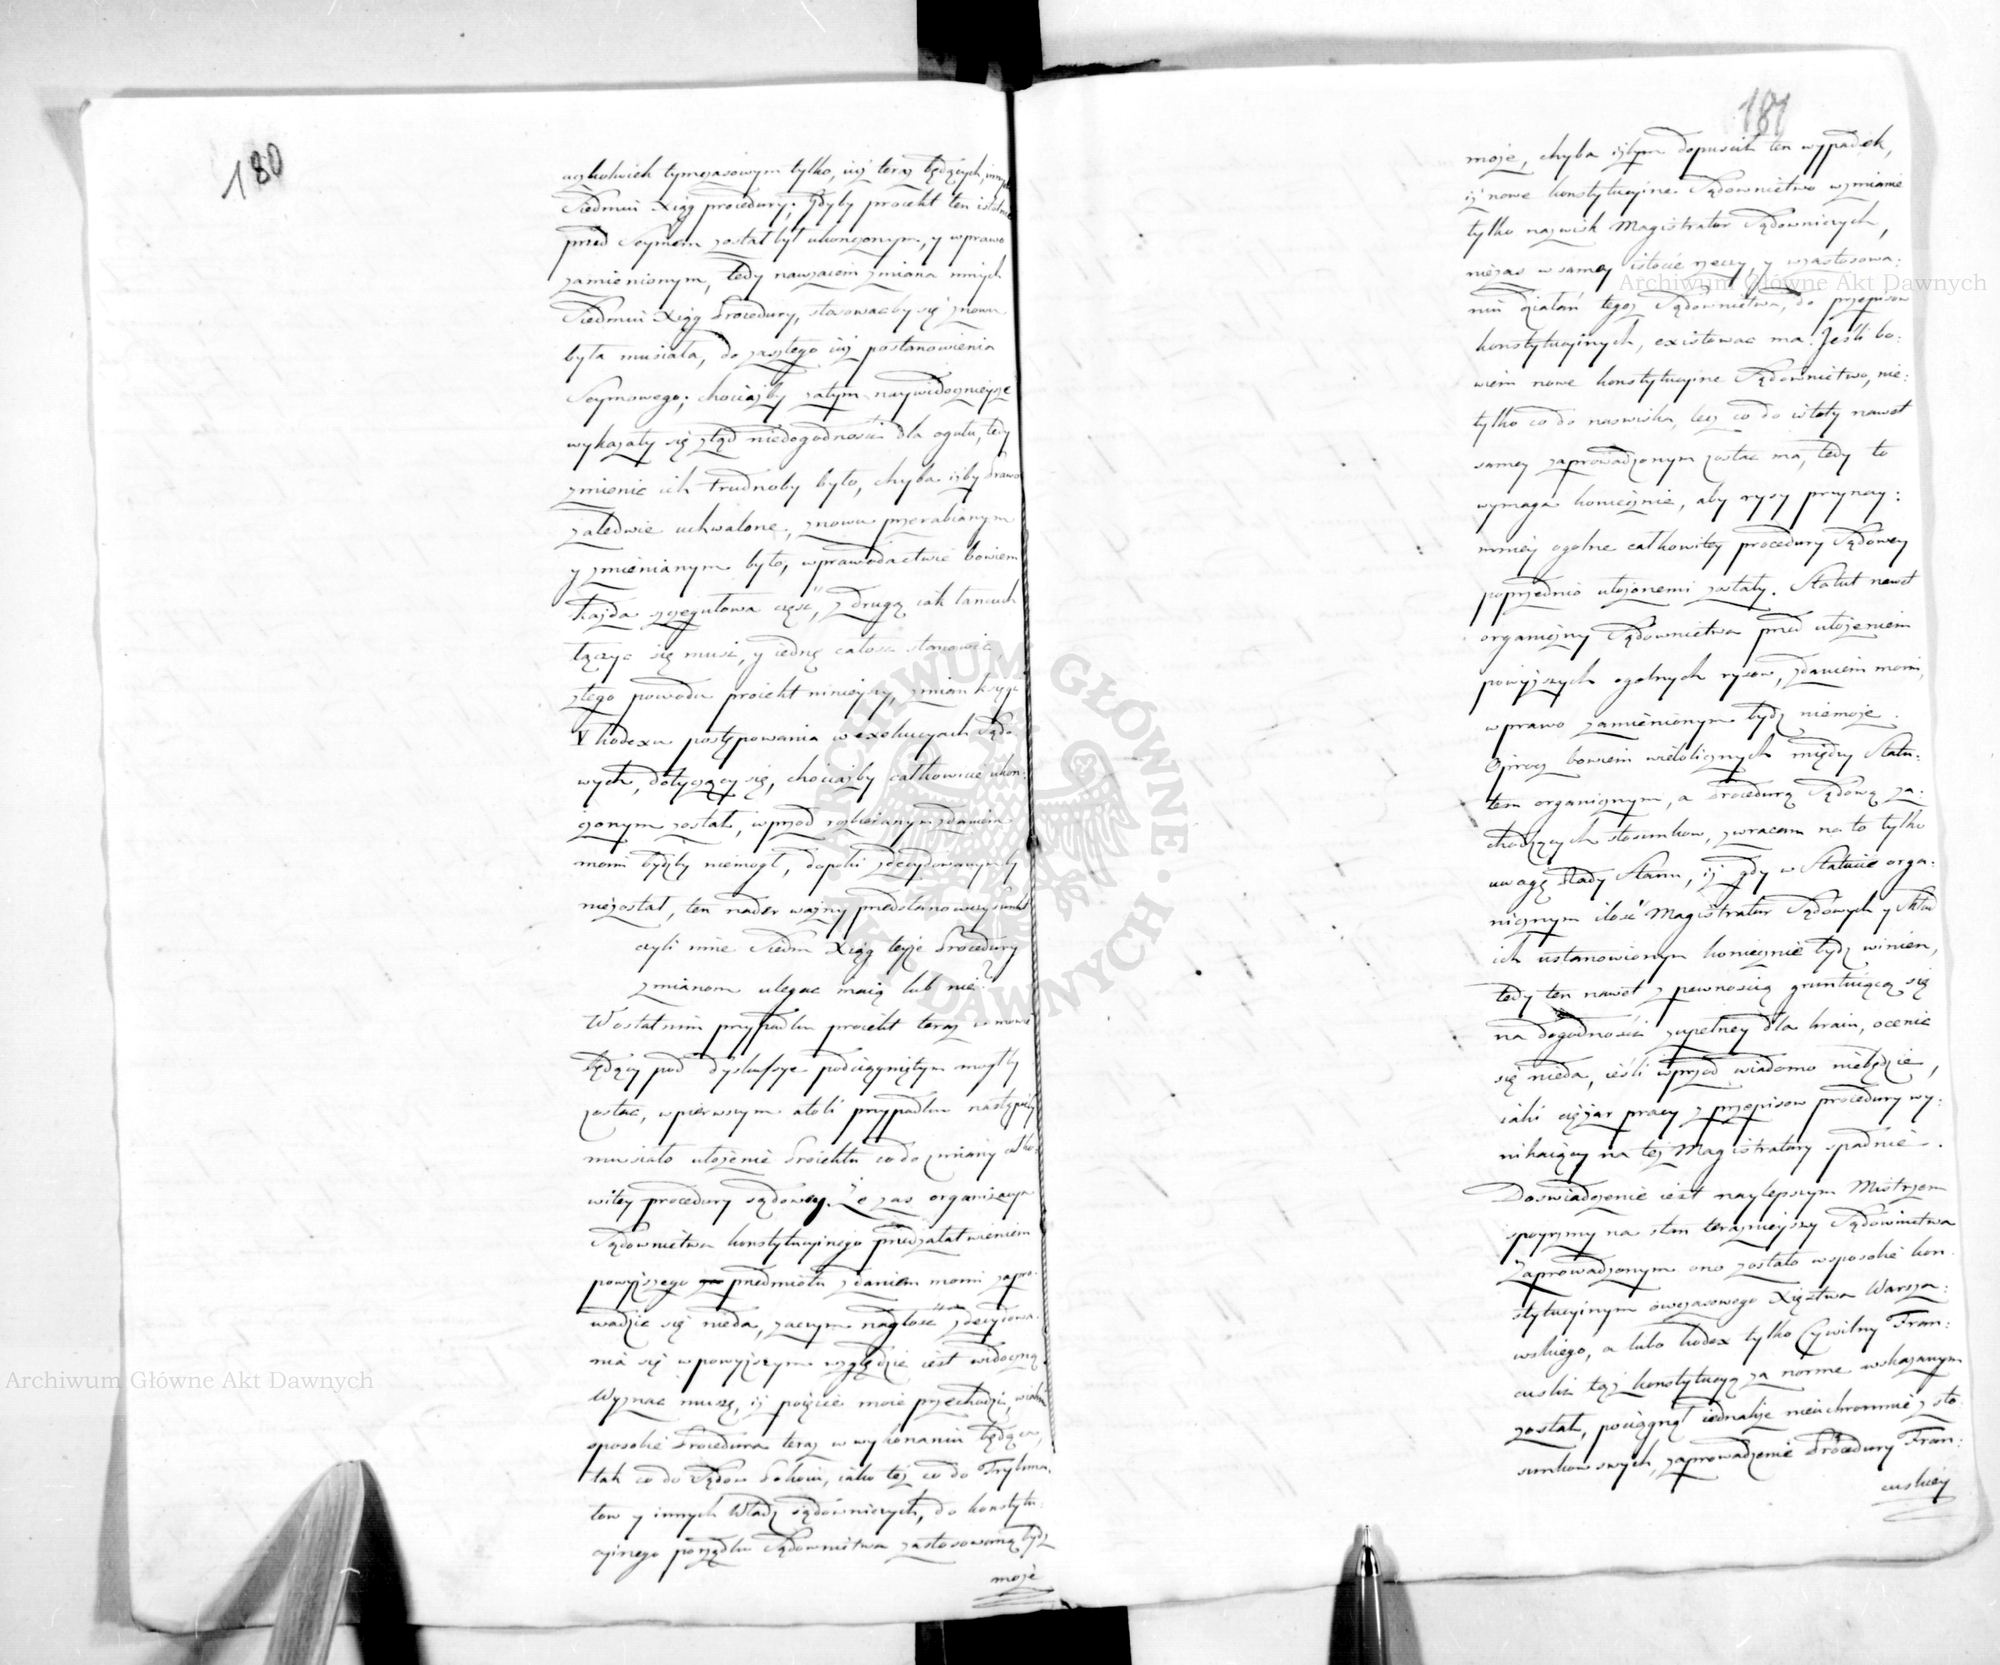 180
aczkolwiek tymczasowym tylko, iuż teraz będących, innych
Siedmiu Xiąg procedury; Gdyby proiekt ten istotnie
przed Seymem został był ukończonym, y w prawo
zamienionym, tedy nawzaiem zmiana innych
Siedmiu Xiąg Procedury, stosowacby się znowu
była musiała, do zaszłego iuż postanowienia
Seymowego; chociażby zatym naywidoczniejsze
wykazały się ztąd niedogodności dla ogółu, tedy
zmienic ich trudnoby było, chyba iżby prawo
zaledwie uchwalone, znowu przerabianym
y zmienianym było, w prawodactwie bowiem
każda szczegułowa część, z drugą iak łancuch
łączyc się musi, y iednę całosc stanowić.
Ztego powodu proiekt ninieyszy, zmian księgi
V kodexu postępowania w exekucyach Sądo-
wych, dotyczący się, chociażby całkowicie ukoń-
czonym został, wprzód rozbieranym zdaniem
moim bydźby niemogł, dopoki zdecydowanymby
niezostał, ten nader ważny przedstanowczy
czyli inne Siedm Xiąg teyże Procedury
zmianom ulegac maią lub nie?
W ostatnim przypadku proiekt teraz w mowie
będący pod dyskussye podciągniętym mogłby
zostac, w pierwszym atoli przypadku nastąpićby
musiało ułożenie Proiektu co do zmiany całko-
witey procedury sądowey. Że zas organizacya
Sądownictwa konstytucyinego przed załatwieniem
powyższego przedmiotu zdaniem moim zapro-
wadzic się nieda, zaczym nagłosc zdecydowa-
nia się w powyższym względzie iest widoczną.
Wyznac muszę, iż poięcie moie przechodzi, w iaki
sposob Procedura teraz w wykonaniu będąca,
tak co do Sądow Pokoiu, iako też co do Trybuna-
łow y innych Władz sądowniczych, do konstytu-
cyinego porządku Sądownictwa zastosowaną bydź
może
181
może, chyba iżbym dopuscił ten wypadek,
iż nowe konstytucyine Sądownictwo w zmianie
tylko nazwisk Magistratur Sądowniczych,
niezas w samey istocie rzeczy, y wzastosowa-
niu działań tegoż Sądownictwa, do przepisow
konstytucyinych, existowac ma. Jeśli bo-
wiem nowe konstytucyine Sądownictwo, nie-
tylko co do nazwiska, lecz co do istoty nawet
samey zaprowadzonym zostac ma, tedy to
wymaga koniecznie, aby rysy przynay-
mniey ogolne całkowitey procedury Sądowey
poprzednio ułożonemi zostały. Statut nawet
organiczny Sądownictwa przed ułożeniem
powyższych ogolnych rysow, zdaniem moim,
w prawo zamienionym bydź niemoże.
Oprocz bowiem wielolicznych między Statu-
tem organicznym, a Procedurą Sądową za-
chodzących stosunkow, zwracam na to tylko
uwagę Rady Stanu, iż gdy w Statucie orga-
nicznym ilość Magistratur Sądowych y Skład
ich ustanowionym koniecznie bydz winien,
tedy ten nawet z pewnoscią gruntuiącą się
na dogodnosci zupełney dla kraiu, ocenic
się nieda, ieśli wprzod wiadomo niebędzie,
iaki ciężar pracy z przepisow procedury wy-
nikaiący na też Magistratury spadnie.
Doswiadczenie iest naylepszym Mistrzem
spoyrzmy na stan teraznieyszy Sądownictwa
Zaprowadzonym ono zostało w sposobie kon-
stytucyinym owczasowego Xięztwa Warsza-
wskiego, a lubo kodex tylko Cywilny Fran-
cuski tąż konstytucyą za norme wskazanym
został, pociągnął iednakże nieuchronnie z sto-
sunkow swych, zaprowadzenie Procedury Fran-
cuskiey
Archiwum Główne Akt Dawnych
Archiwum Główne Akt Dawnych
ARCHIWUM GŁÓWNE AKT DAWNYCH